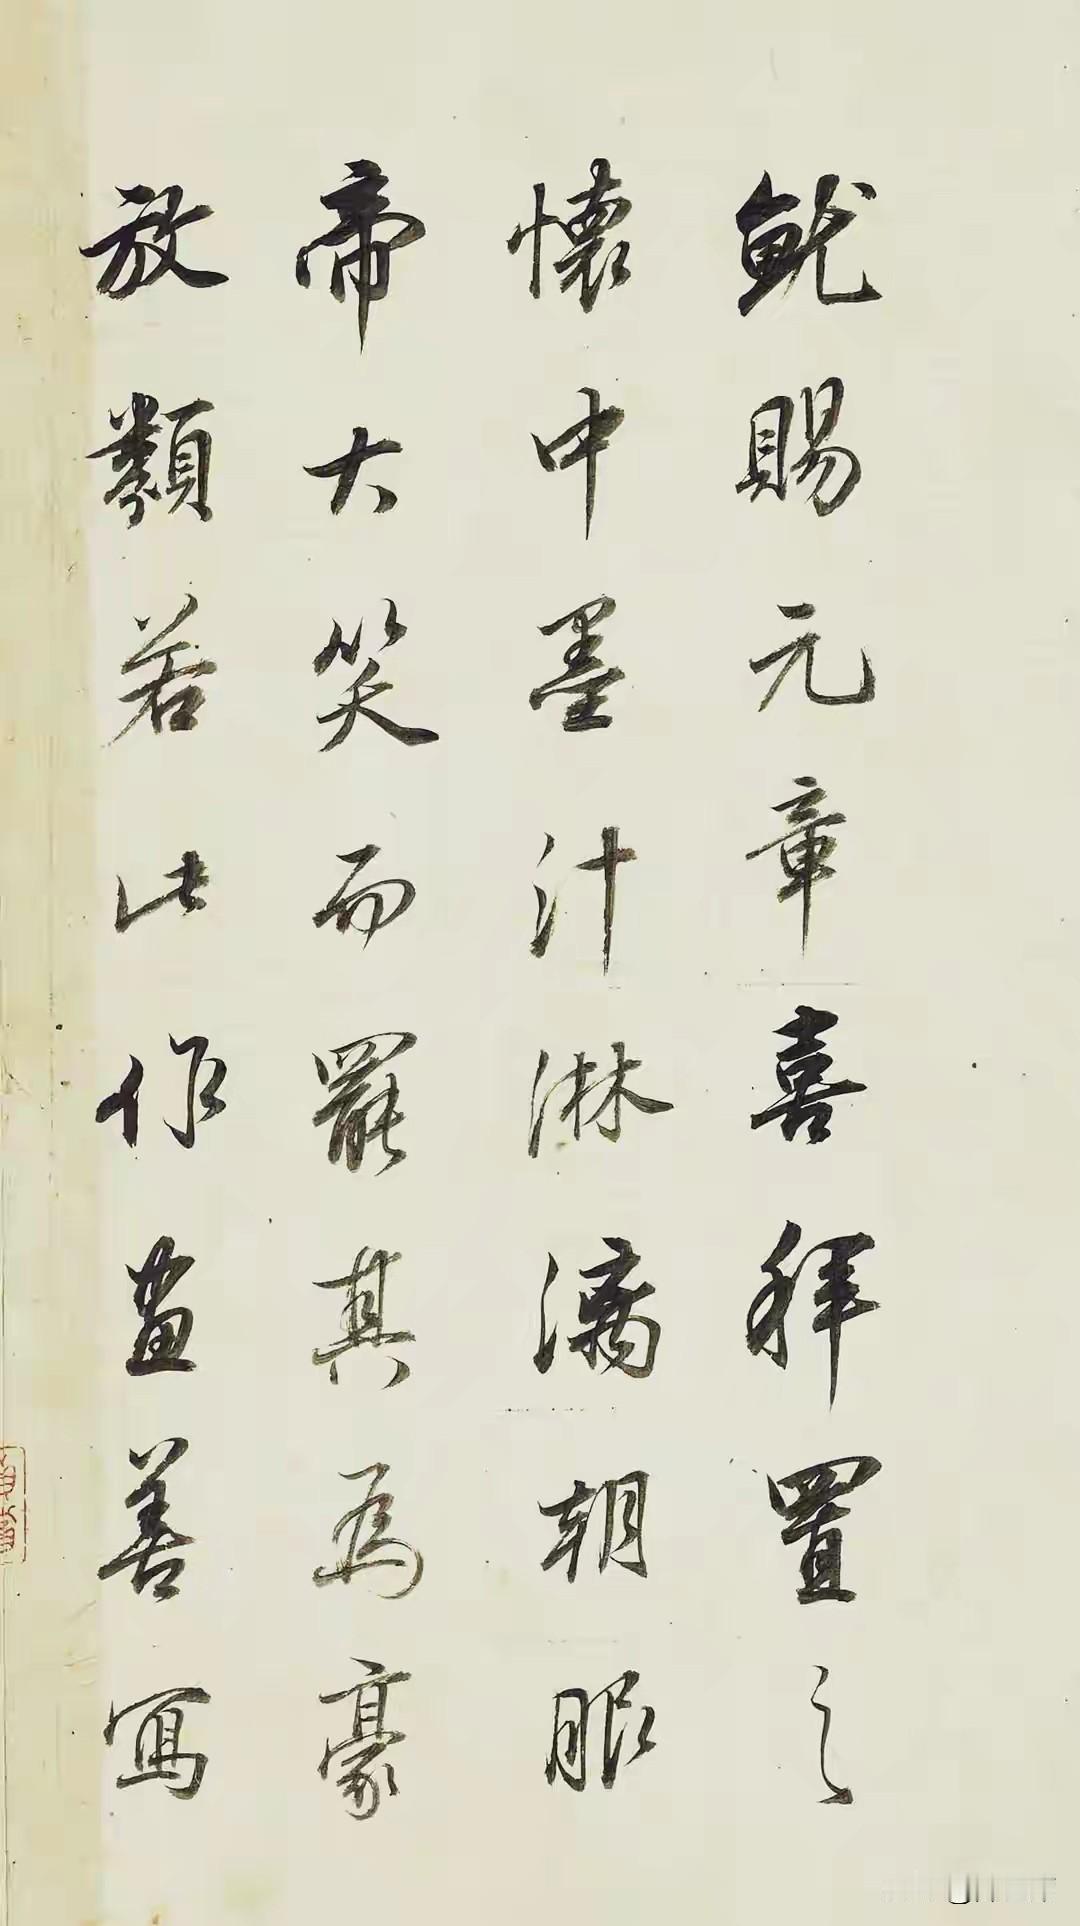 就賜元章喜拜置之
懷中墨汁淋漓朝服
帝大笑而罷其為豪
放類若此作畫善寫